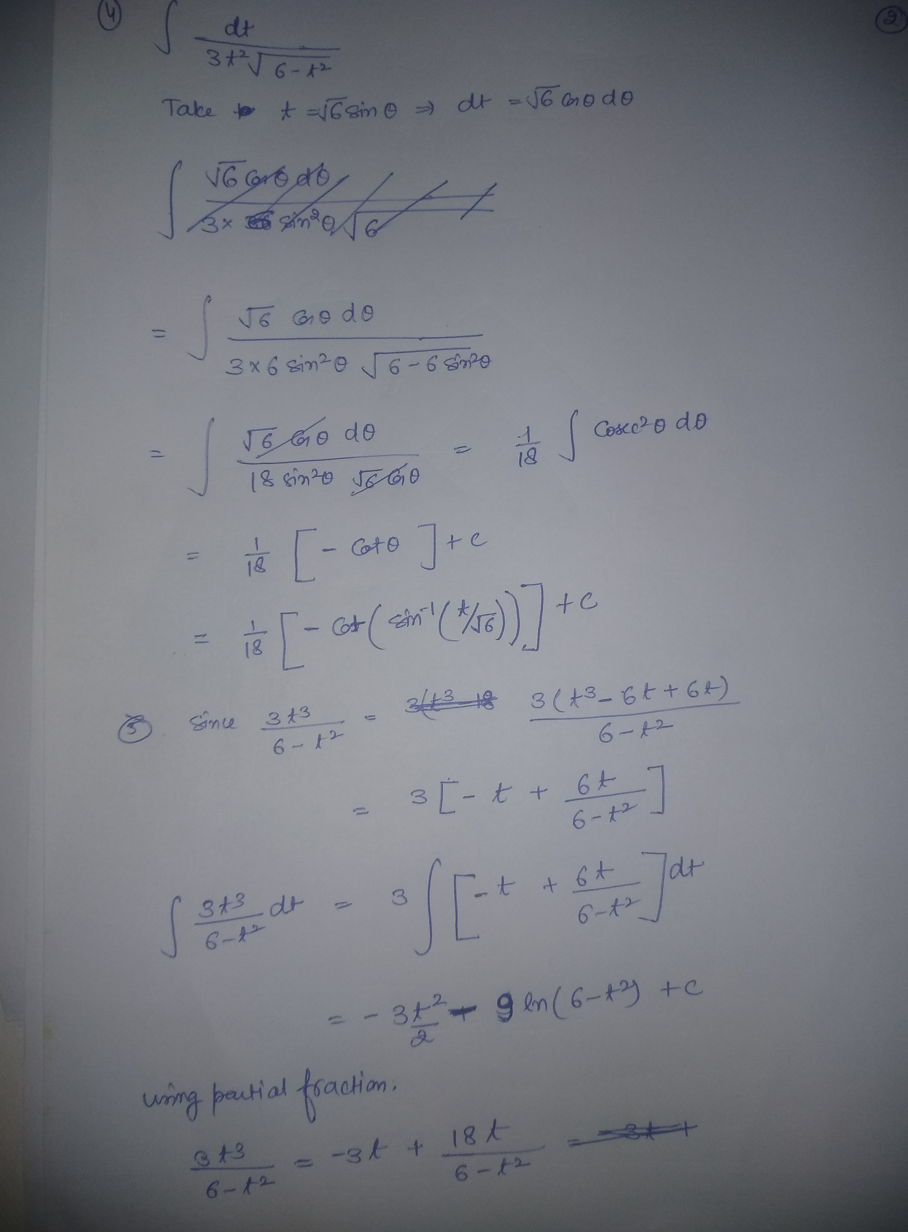 ④ ②
∫ dt / 3t²√(6-t²)
Take t = √6 sinθ ⇒ dt = √6 cosθ dθ
∫ √6 cosθ dθ / 3× sin²θ √6
= ∫ √6 cosθ dθ / 3×6 sin²θ √(6-6sin²θ)
= ∫ √6 cosθ dθ / 18 sin²θ √6 cosθ = 1/18 ∫ Cosec²θ dθ
= 1/18 [- Cotθ] + c
= 1/18 [- Cot(sin⁻¹(t/√6))] + c
⑤ Since 3t³ / 6-t² = 3(t³-18 3(t³-6t+6t) / 6-t²
= 3[-t + 6t / 6-t²]
∫ 3t³ / 6-t² dt = 3 ∫ [-t + 6t / 6-t²] dt
= - 3t²/2 - 9 ln(6-t²) + c
using partial fraction.
3t³ / 6-t² = -3t + 18t / 6-t² = -3t +